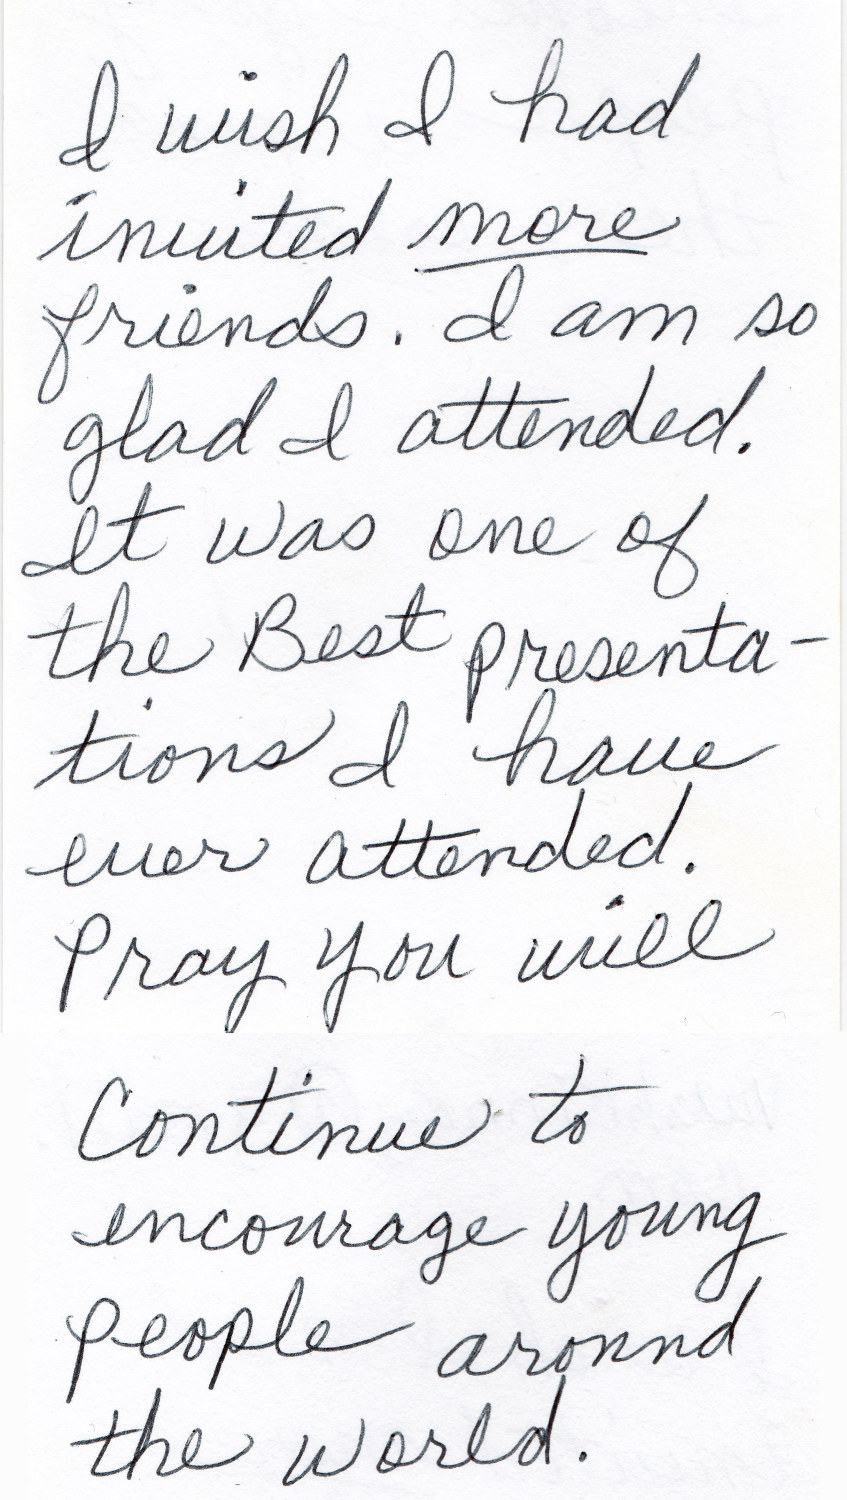 I wish I had
invited more
friends. I am so
glad I attended.
It was one of
the Best presenta-
tions I have
ever attended.
Pray you will
Continue to
encourage young
people around
the world.